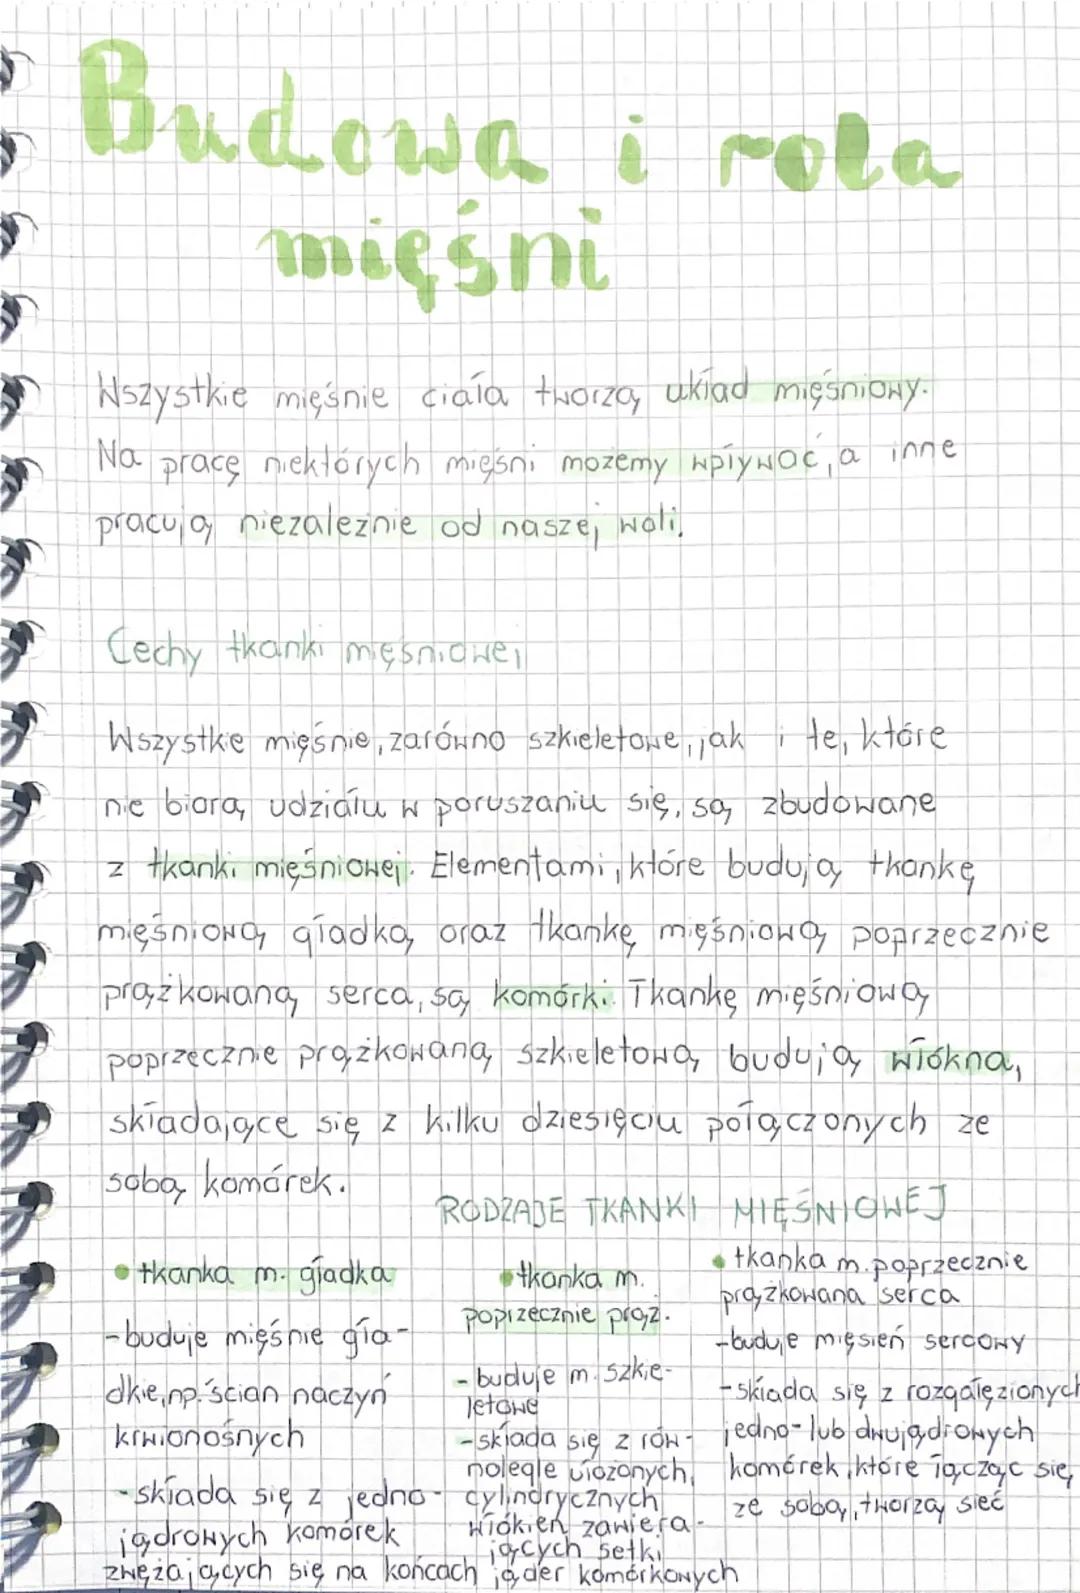 Budowa i rola
mięśni
Wszystkie mięśnie ciała tworzą układ mięśniowy.
Na pracę niektórych mięśni możemy wpływać, a inne
pracują niezależnie od naszej woli.
Cechy tkanki mięśniowej
Wszystkie mięśnie, zarówno szkieletowe, jak i te, które
nie biorą udziału w poruszaniu się, są zbudowane
z tkanki mięśniowej. Elementami, które budują tkankę
mięśniową gładką oraz tkankę mięśniową poprzecznie
prążkowaną serca, są komórki. Tkankę mięśniową
poprzecznie prążkowaną szkieletową budują włókna,
składające się z kilku dziesięciu połączonych ze
sobą komórek.
RODZAJE TKANKI MIĘŚNIOWEJ
• tkanka m. gładka
-buduje mięśnie gła-
dkie, np. ścian naczyń
krwionośnych
-składa się z jedno-
jądrowych komórek
zwężających się na końcach
• tkanka m.
poprzecznie prąż.
- buduje m. szkie-
letowe
-składa się z rów-
nolegle ułożonych,
cylindrycznych
włókien zawiera-
jących setki
jąder komórkowych
• tkanka m. poprzecznie
prążkowana serca
-buduje mięsień sercowy
-składa się z rozgałęzionych
jedno- lub dwujądrowych
komórek, które łącząc się
ze sobą, tworzą sieć